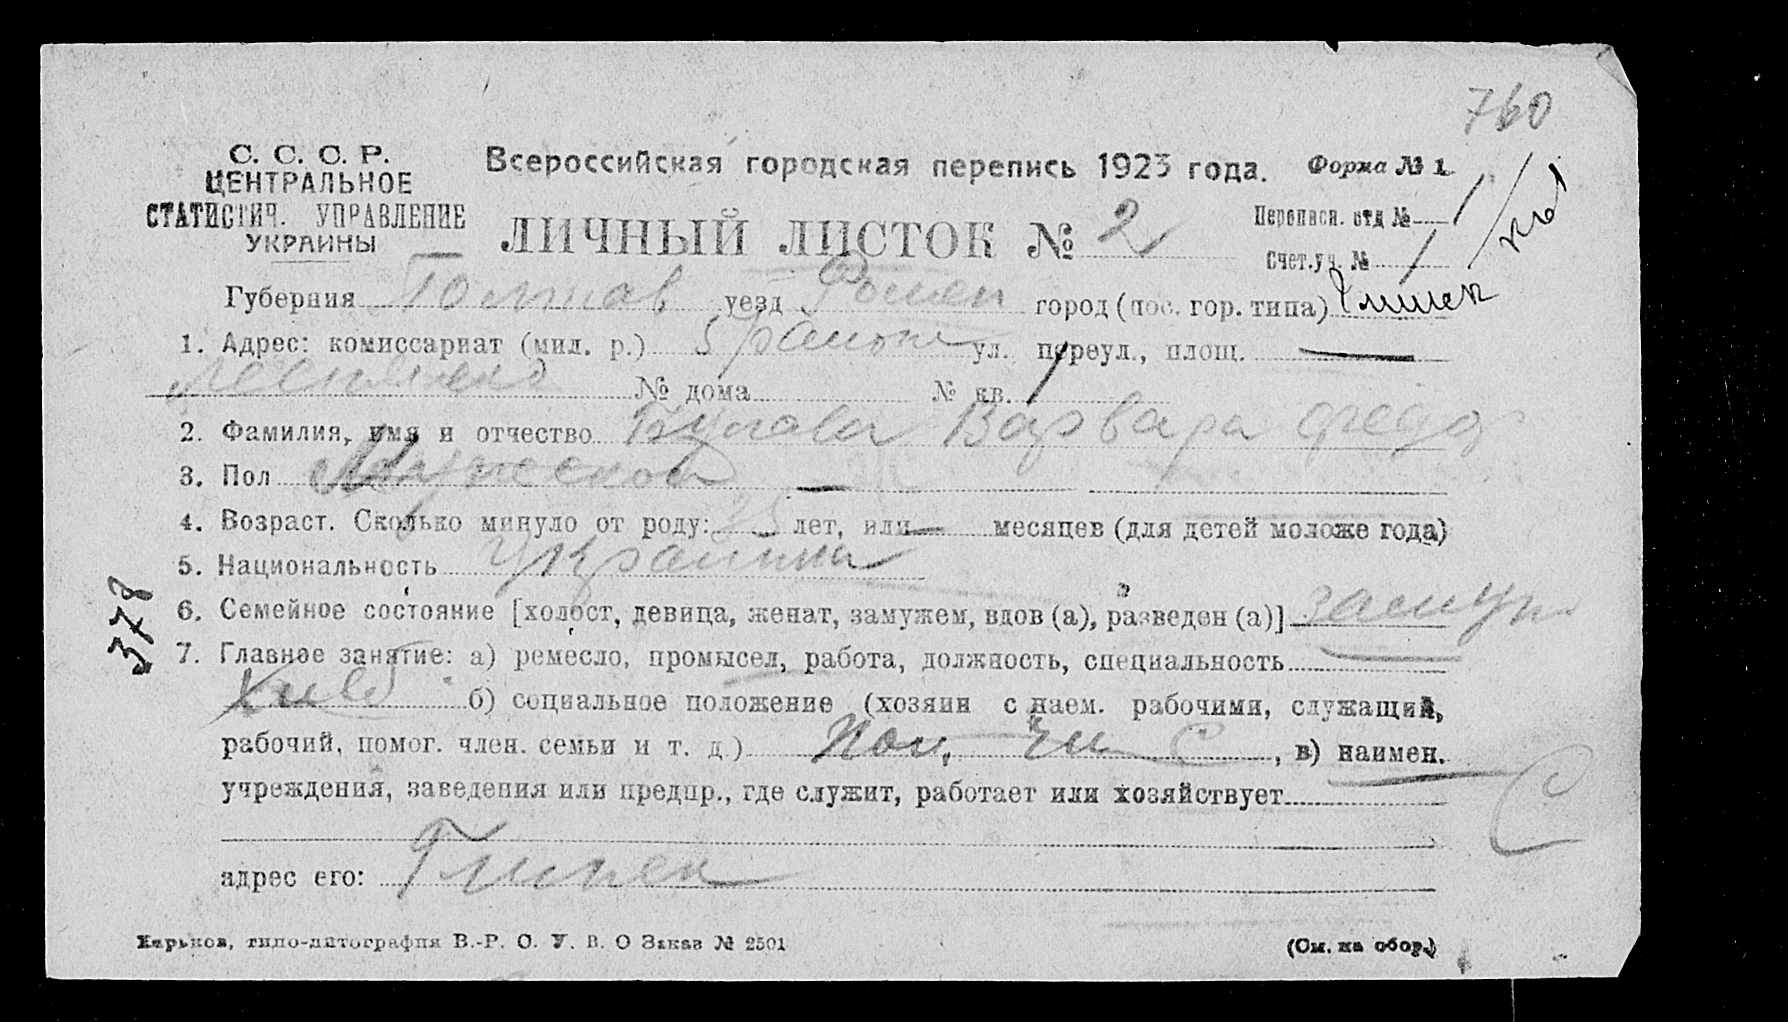 760
С. С. С. Р.
ЦЕНТРАЛЬНОЕ
СТАТИСТИЧ. УПРАВЛЕНИЕ
УКРАИНЫ
Всероссийская городская перепись 1923 года. Форма № 1.
ЛИЧНЫЙ ЛИСТОК № 2
Переписн. отд № 1
Счет. уч. № 1
Губерния Полтав уезд Ромен город (пос. гор. типа)
1. Адрес: комиссариат (мил. р.) 5 района ул. переул., площ. —
№ дома № кв.
2. Фамилия, имя и отчество Булава Варвара Федор
3. Пол —
4. Возраст. Сколько минуло от роду: 25 лет, или — месяцев (для детей моложе года)
5. Национальность Украинка
6. Семейное состояние [холост, девица, женат, замужем, вдов (а), разведен (а)] замуж
7. Главное занятие: а) ремесло, промысел, работа, должность, специальность
Хлеб б) социальное положение (хозяин с наем. рабочими, служащий,
рабочий, помог. член. семьи и т. д.) Пом. чл. С , в) наимен.
учреждения, заведения или предпр., где служит, работает или хозяйствует
С
адрес его: Глинск
378
Харьков, типо-литография В.-Р. О. У. В. О Заказ № 2501
(См. на обор.)